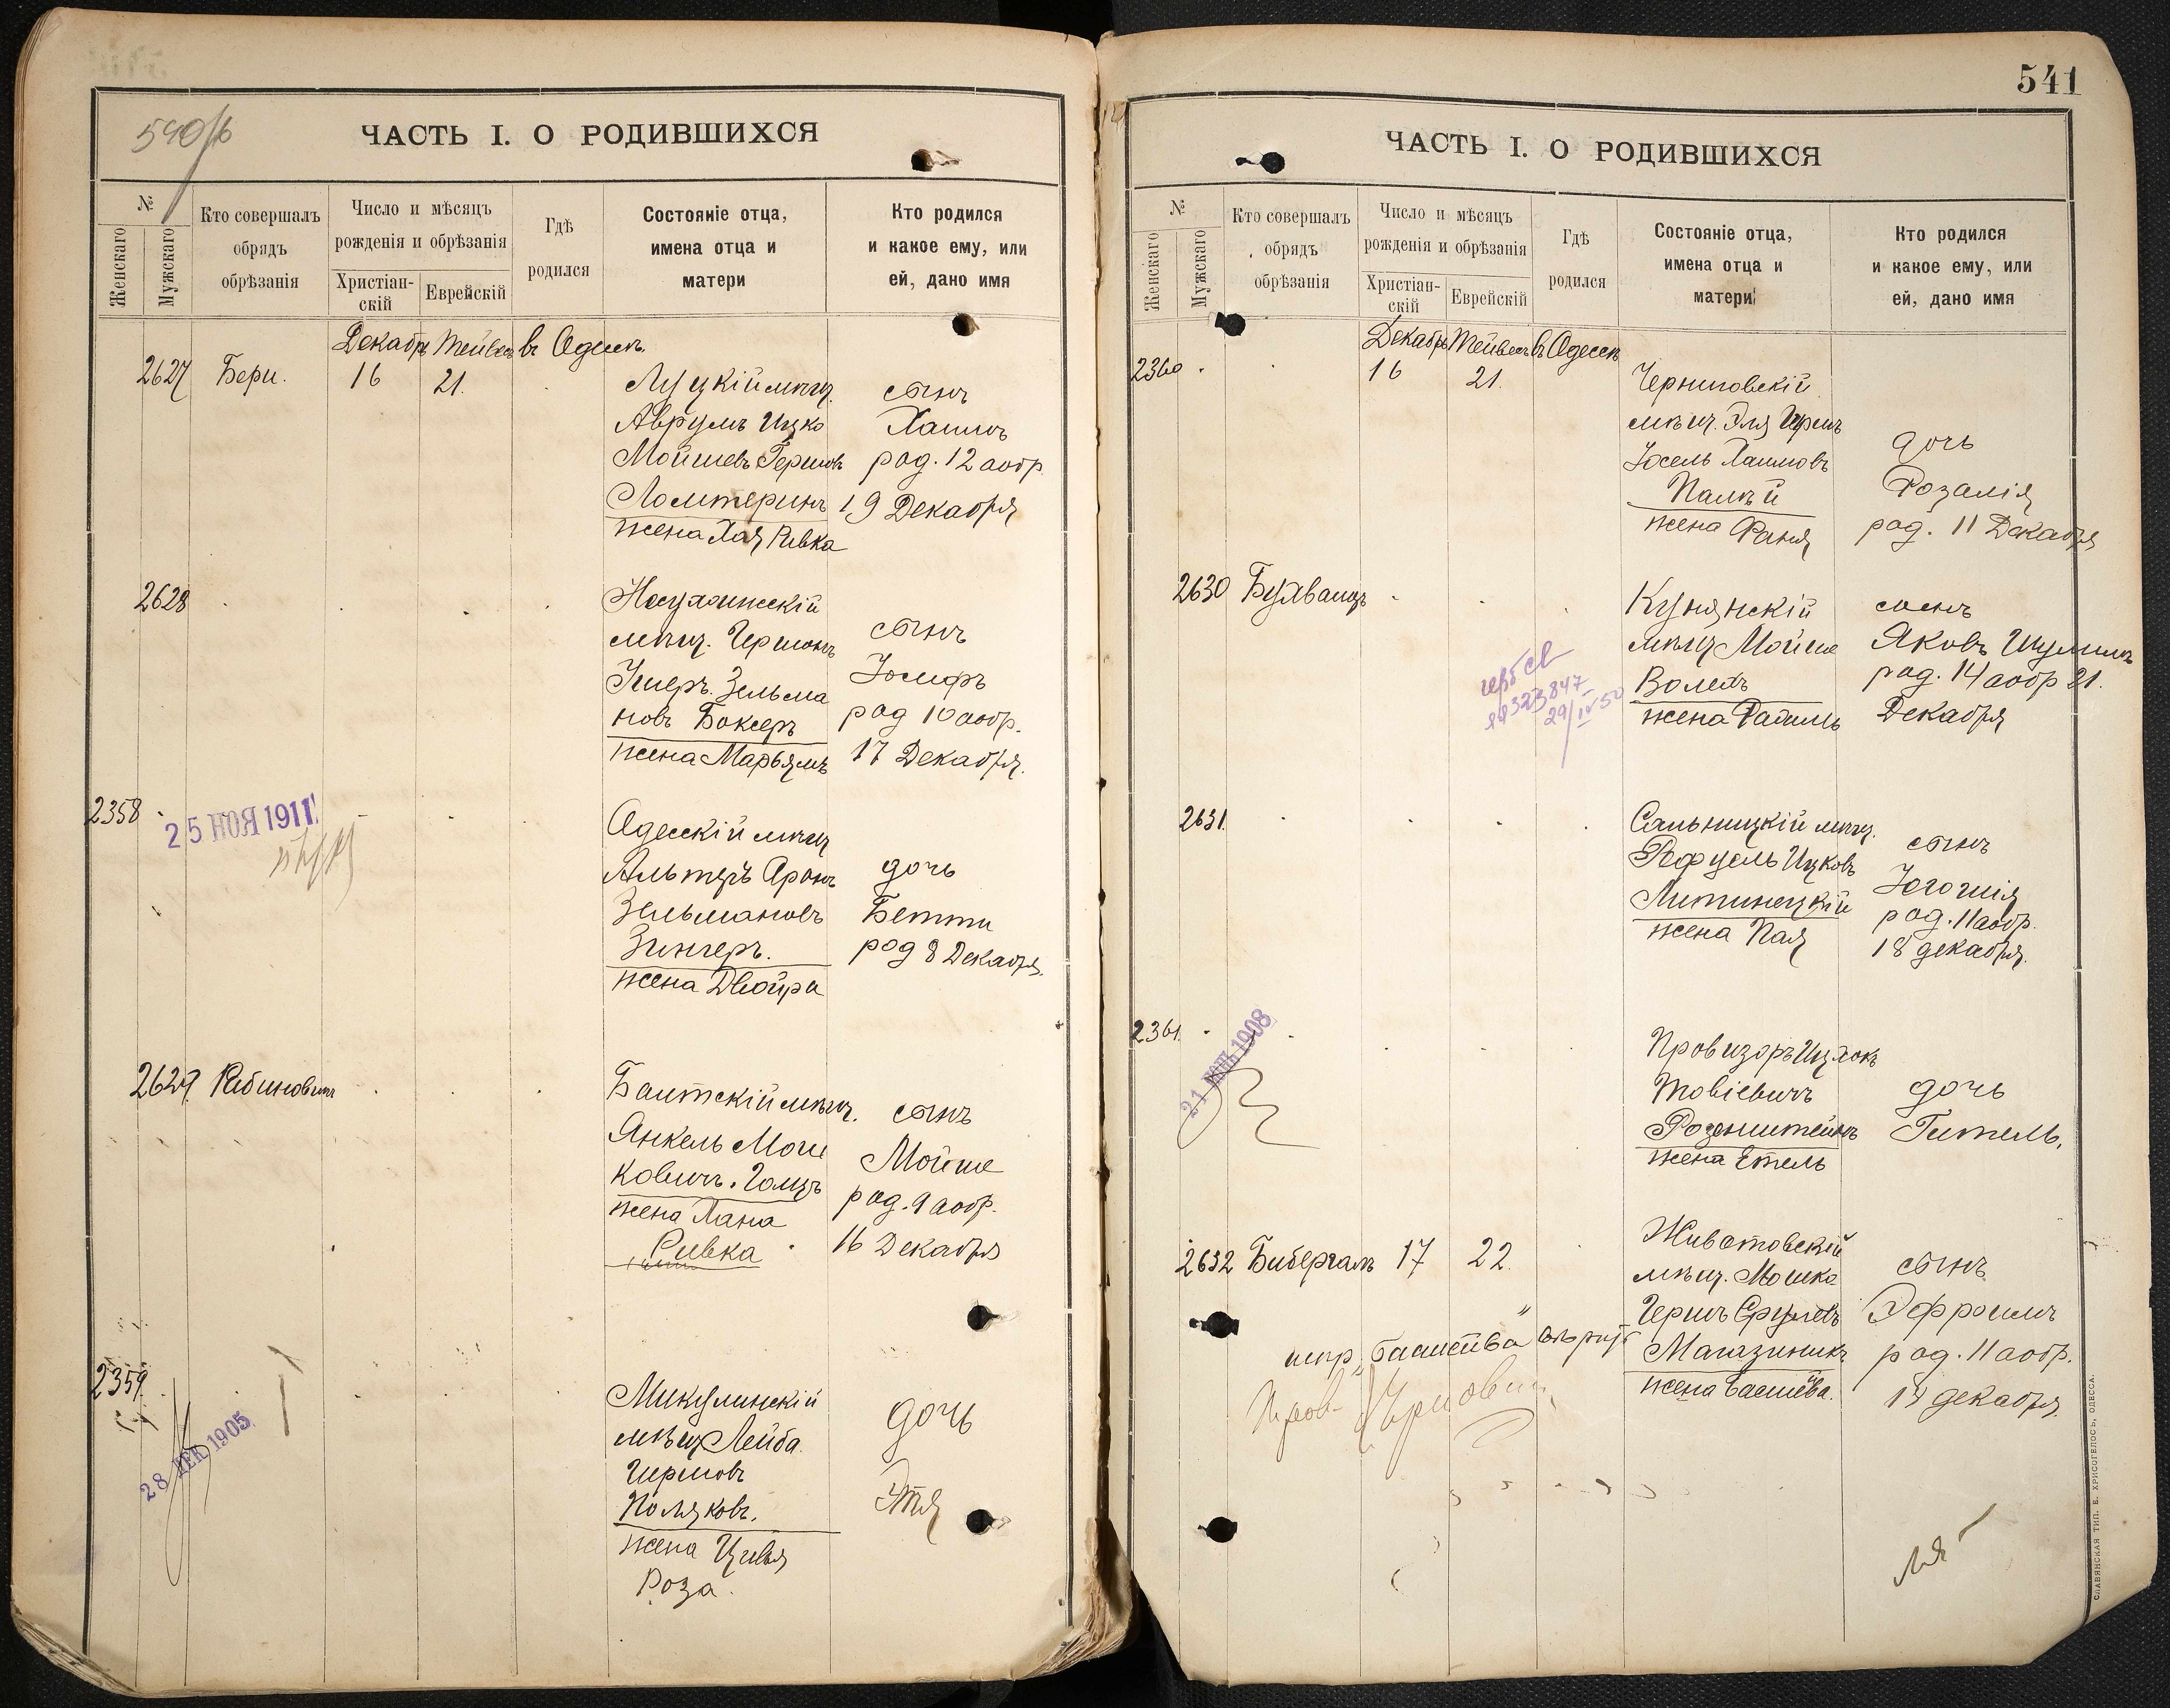 540/б
ЧАСТЬ I. О РОДИВШИХСЯ
№
Женскаго
Мужскаго
Кто совершалъ
обрядъ
обрѣзанія
Число и мѣсяцъ
рожденія и обрѣзанія
Христіан-
скій
Еврейскій
Гдѣ
родился
Состояніе отца,
имена отца и
матери
Кто родился
и какое ему, или
ей, дано имя
Декабрь Тейвесъ въ Одессѣ
2627 Бери. 16 21.
Луцкій мѣщ.
Аврумъ Ицко
Мойшевъ Гершовъ
жена Хая Ривка
сынъ
Хаимъ
род. 12 а обр.
19 Декабря
2628
мѣщ. Гершонъ
Зельма
новъ Боксеръ
жена Марьямъ
сынъ
Іосифъ
род 10 а обр.
17 Декабря.
2358
25 НОЯ 1911
Одесскій мѣщ
Альтеръ Аронъ
Зельмановъ
Зингеръ.
жена Двойра
дочь
Бетти
род 8 Декабря.
2629 Рабиновичъ
мѣщ.
Янкель Мош
ковичъ
жена Хана
Ривка
сынъ
Мойше
род. 9 а обр.
16 Декабря
2359
28 ДЕК 1905
Микулинскій
мѣщ Лейба
Гершовъ
Поляковъ.
жена Цивья
Роза.
дочь
Этя
541
ЧАСТЬ I. О РОДИВШИХСЯ
№
Женскаго
Мужскаго
Кто совершалъ
обрядъ
обрѣзанія
Число и мѣсяцъ
рожденія и обрѣзанія
Христіан-
скій
Еврейскій
Гдѣ
родился
Состояніе отца,
имена отца и
матери
Кто родился
и какое ему, или
ей, дано имя
Декабрь Тейвесъ въ Одессѣ
2360 16 21.
мѣщ. Эля Гершъ
Іосель Хаимовъ
Палѣй
жена Фаня
дочь
Розалія
род. 11 Декабря
2630
323847
29/IV 50
мѣщ Мойше
жена Рахиль
сынъ
Яковъ Шулимъ
род. 14 а обр 21.
Декабря
2631.
Сальницкій мѣщ.
Рефуель Ицковъ
Литинецкій
жена Пая
сынъ
род. 11 а обр.
18 декабря.
2361.
1908
Провизоръ Ицхокъ
Товіевичъ
Розенштейнъ
жена Етель
дочь
Гитель.
2632 Бибергалъ 17 22.
Животовскій
мѣщ. Мошко
Гершъ Сруловъ
Магазиникъ
жена Басшева.
сынъ
Эфроимъ
род. 11 а обр.
17 декабря.
СЛАВЯНСКАЯ ТИП. Е. ХРИСОГЕЛОСЪ, ОДЕССА.